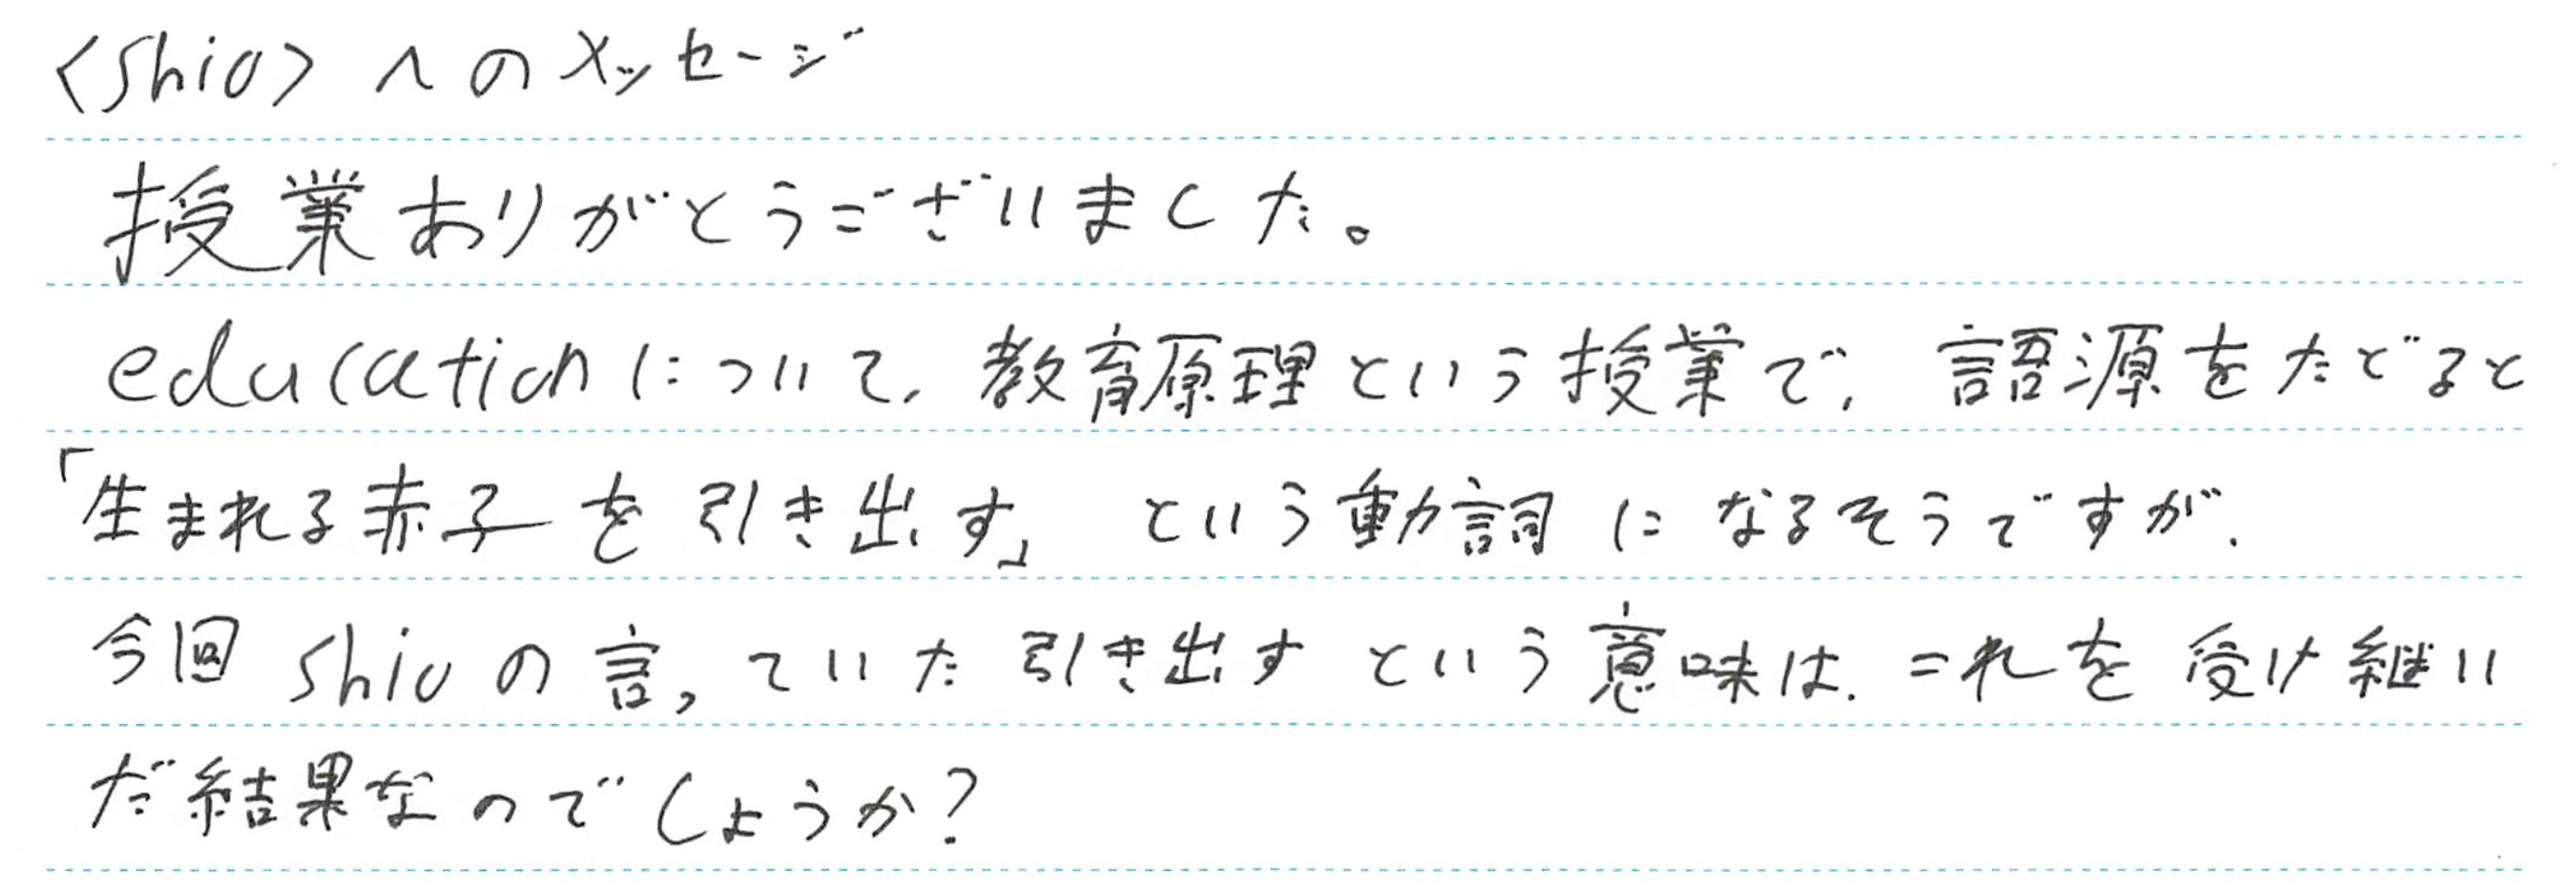 <Shio> へのメッセージ
授業ありがとうございました。
educationについて、教育原理という授業で、語源をたどると
「生まれる赤子を引き出す」という動詞になるそうですが、
今回 shioの言っていた引き出すという意味は、これを受け継い
だ結果なのでしょうか?